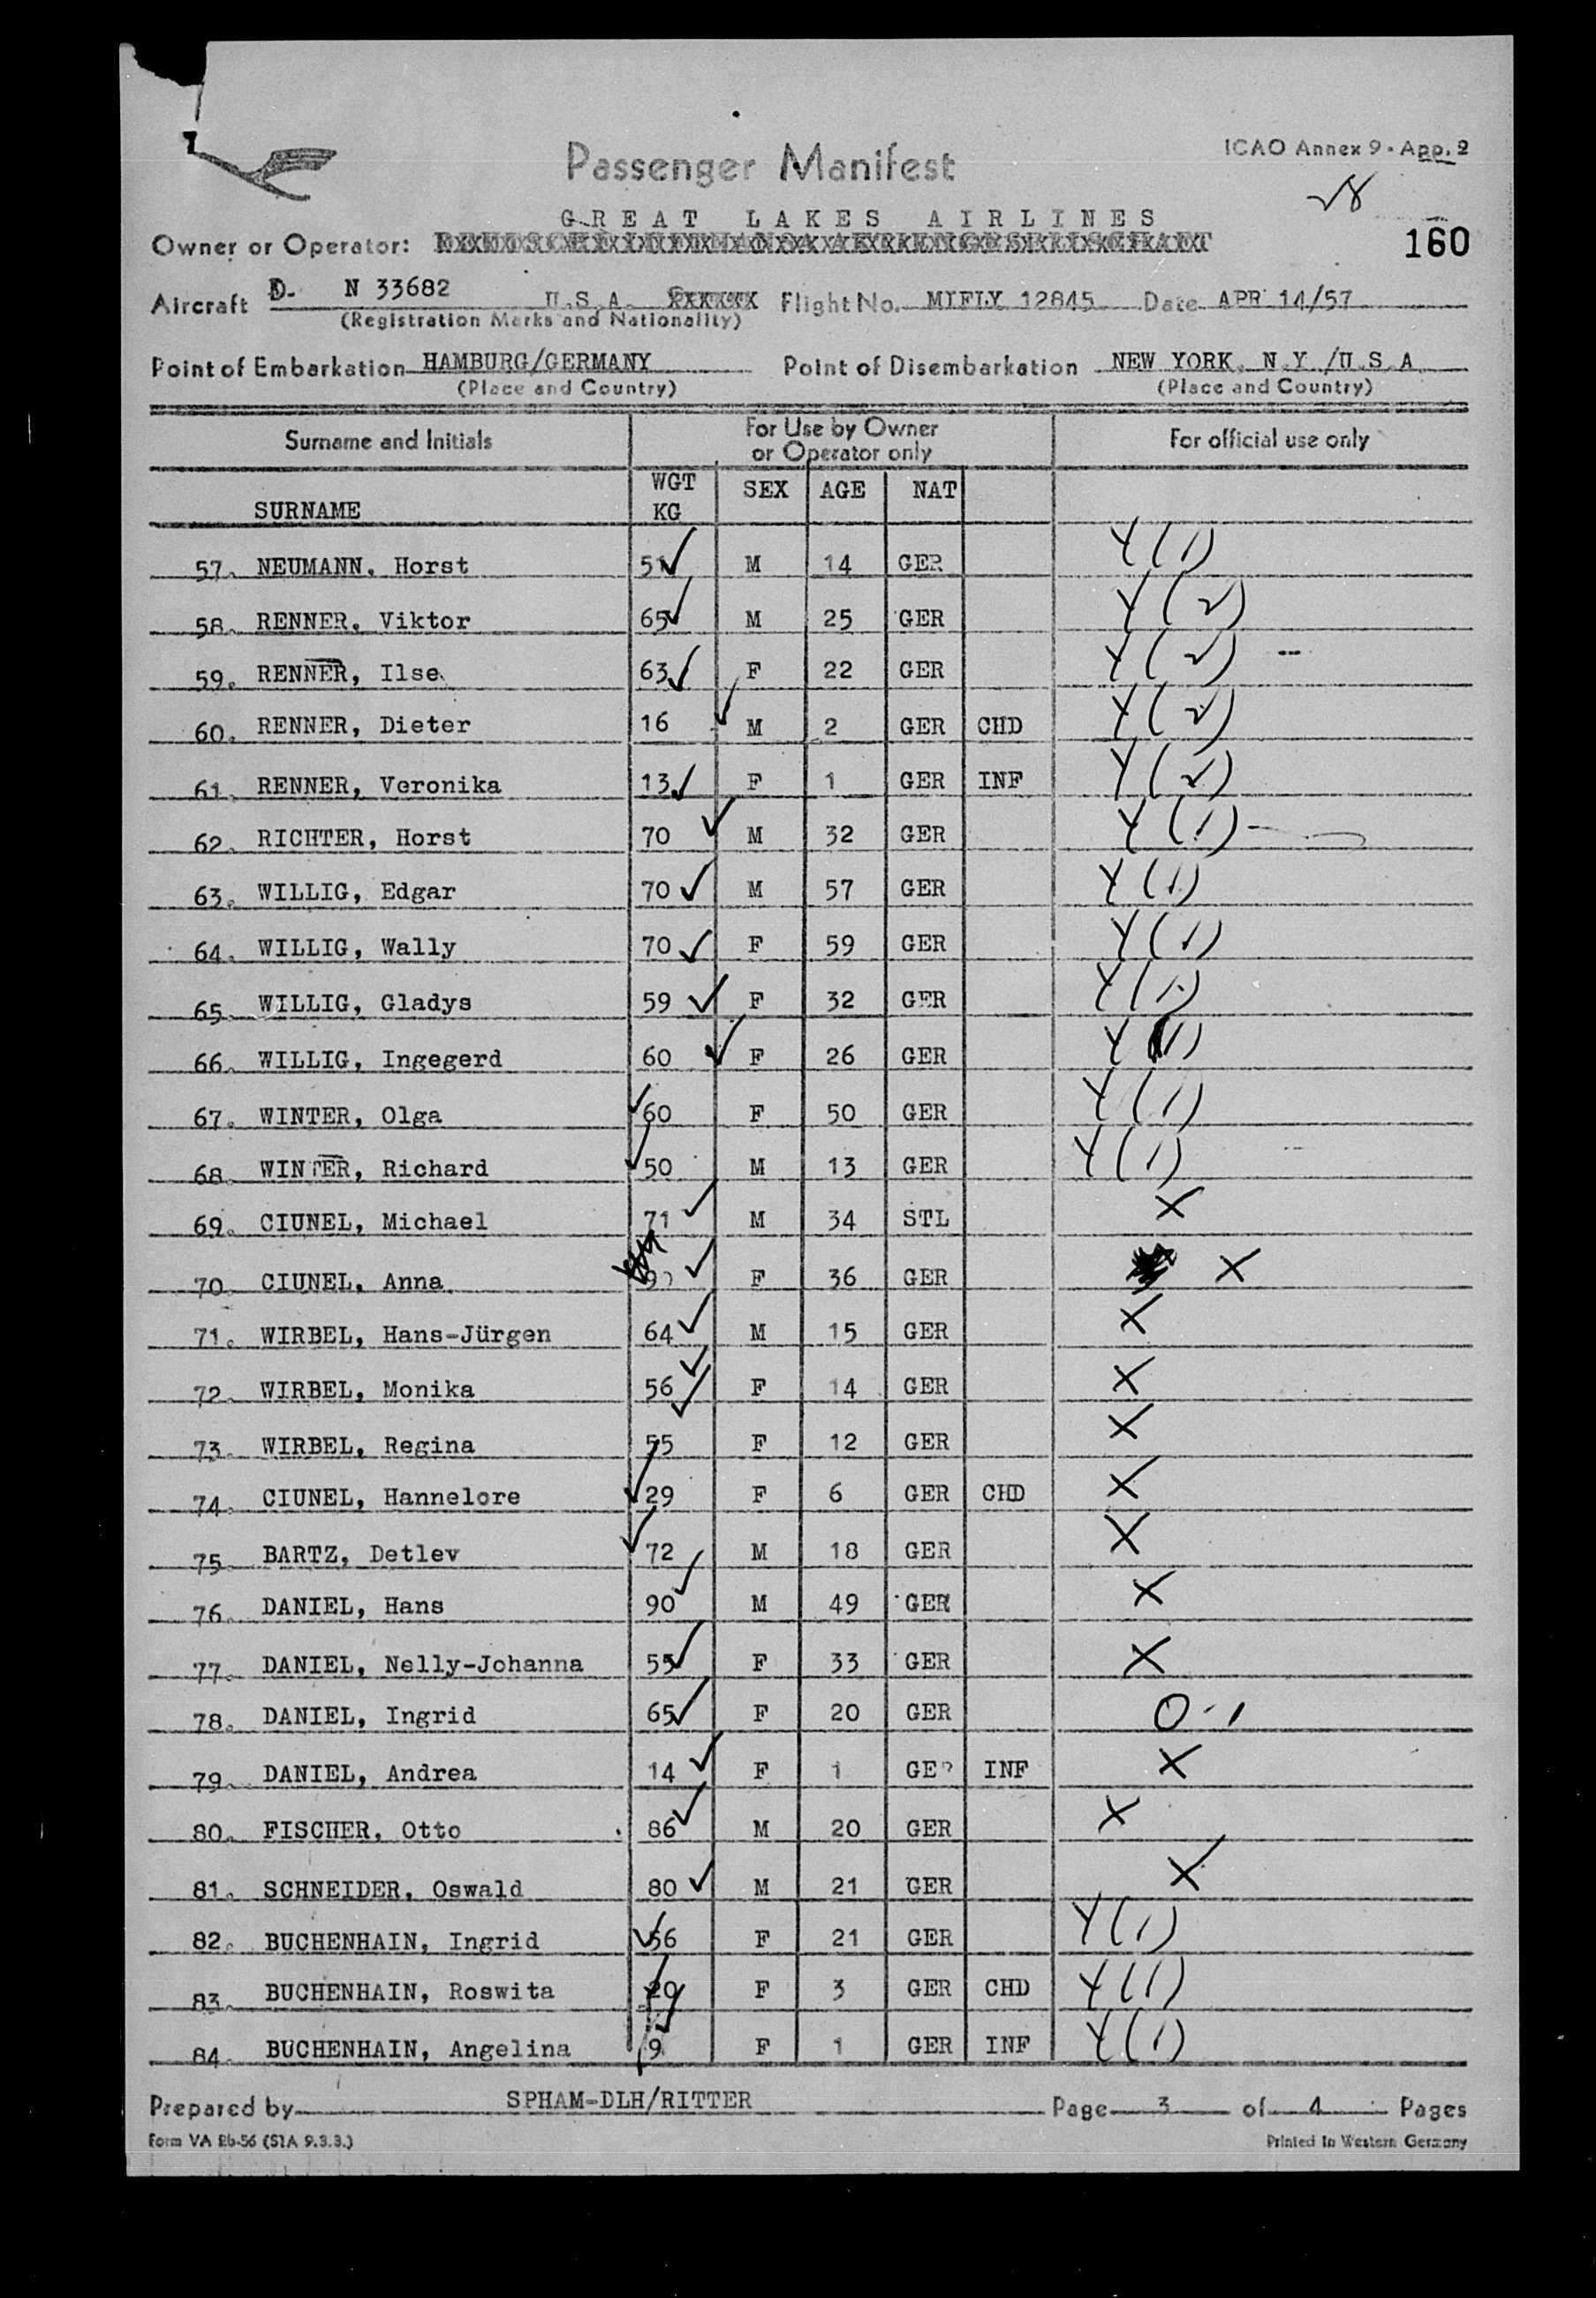 Passenger Manifest
ICAO Annex 9 - App. 2
GREAT LAKES AIRLINES
160
Owner or Operator:
Aircraft D- N 33682 U.S.A. Flight No. MIFLY 12845 Date APR 14/57
(Registration Marks and Nationality)
Point of Embarkation HAMBURG/GERMANY Point of Disembarkation NEW YORK, N.Y./U.S.A.
(Place and Country) (Place and Country)
Surname and Initials For Use by Owner or Operator only For official use only
SURNAME WGT KG SEX AGE NAT
57. NEUMANN, Horst 51 M 14 GER Y (1)
58. RENNER, Viktor 65 M 25 GER Y (2)
59. RENNER, Ilse 63 F 22 GER Y (2)
60. RENNER, Dieter 16 M 2 GER CHD Y (2)
61. RENNER, Veronika 13 F 1 GER INF Y (2)
62. RICHTER, Horst 70 M 32 GER Y (1)
63. WILLIG, Edgar 70 M 57 GER Y (1)
64. WILLIG, Wally 70 F 59 GER Y (1)
65. WILLIG, Gladys 59 F 32 GER Y (1)
66. WILLIG, Ingegerd 60 F 26 GER Y (1)
67. WINTER, Olga 60 F 50 GER Y (1)
68. WINTER, Richard 50 M 13 GER Y (1)
69. CIUNEL, Michael 71 M 34 STL X
70. CIUNEL, Anna F 36 GER X
71. WIRBEL, Hans-Jürgen 64 M 15 GER X
72. WIRBEL, Monika 56 F 14 GER X
73. WIRBEL, Regina 55 F 12 GER X
74. CIUNEL, Hannelore 29 F 6 GER CHD X
75. BARTZ, Detlev 72 M 18 GER X
76. DANIEL, Hans 90 M 49 GER X
77. DANIEL, Nelly-Johanna 55 F 33 GER X
78. DANIEL, Ingrid 65 F 20 GER O-1
79. DANIEL, Andrea 14 F 1 GER INF X
80. FISCHER, Otto 86 M 20 GER X
81. SCHNEIDER, Oswald 80 M 21 GER X
82. BUCHENHAIN, Ingrid 56 F 21 GER Y (1)
83. BUCHENHAIN, Roswita 20 F 3 GER CHD Y (1)
84. BUCHENHAIN, Angelina 9 F 1 GER INF Y (1)
Prepared by SPHAM-DLH/RITTER Page 3 of 4 Pages
Form VA 26-56 (S1A 9.3.3.) Printed in Western Germany